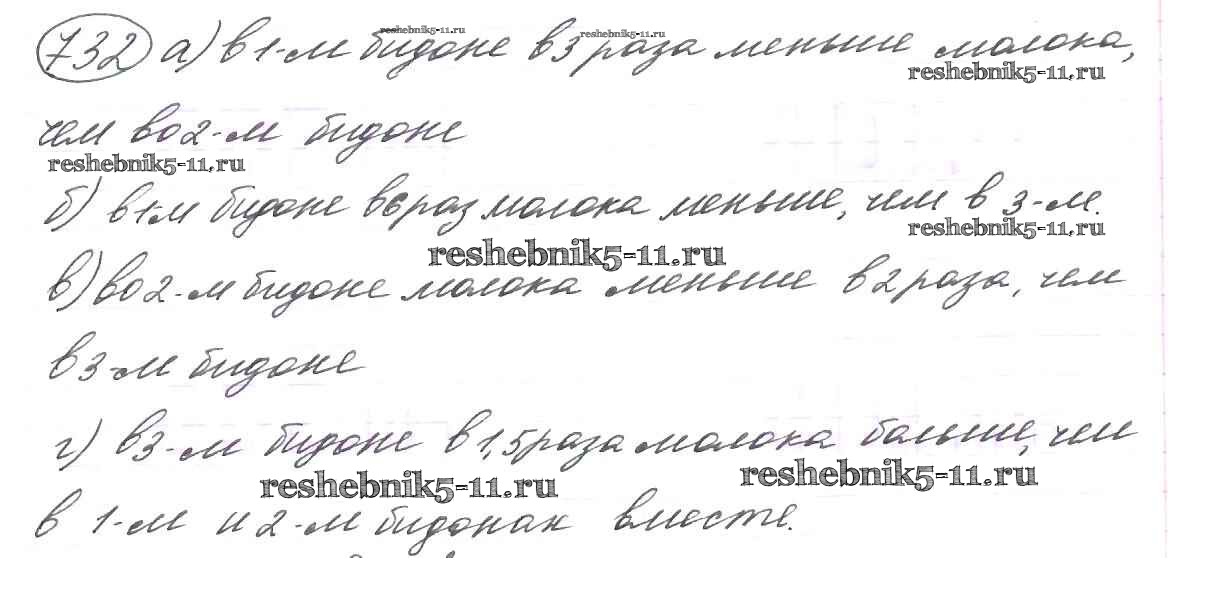 732 а) в 1-м бидоне в 3 раза меньше молока,
reshebnik5-11.ru
reshebnik5-11.ru
reshebnik5-11.ru
чем во 2-м бидоне
reshebnik5-11.ru
б) в 1-м бидоне в 6 раз молока меньше, чем в 3-м.
reshebnik5-11.ru
reshebnik5-11.ru
в) во 2-м бидоне молока меньше в 2 раза, чем
в 3-м бидоне
г) в 3-м бидоне в 1,5 раза молока больше, чем
reshebnik5-11.ru
reshebnik5-11.ru
в 1-м и 2-м бидонах вместе.